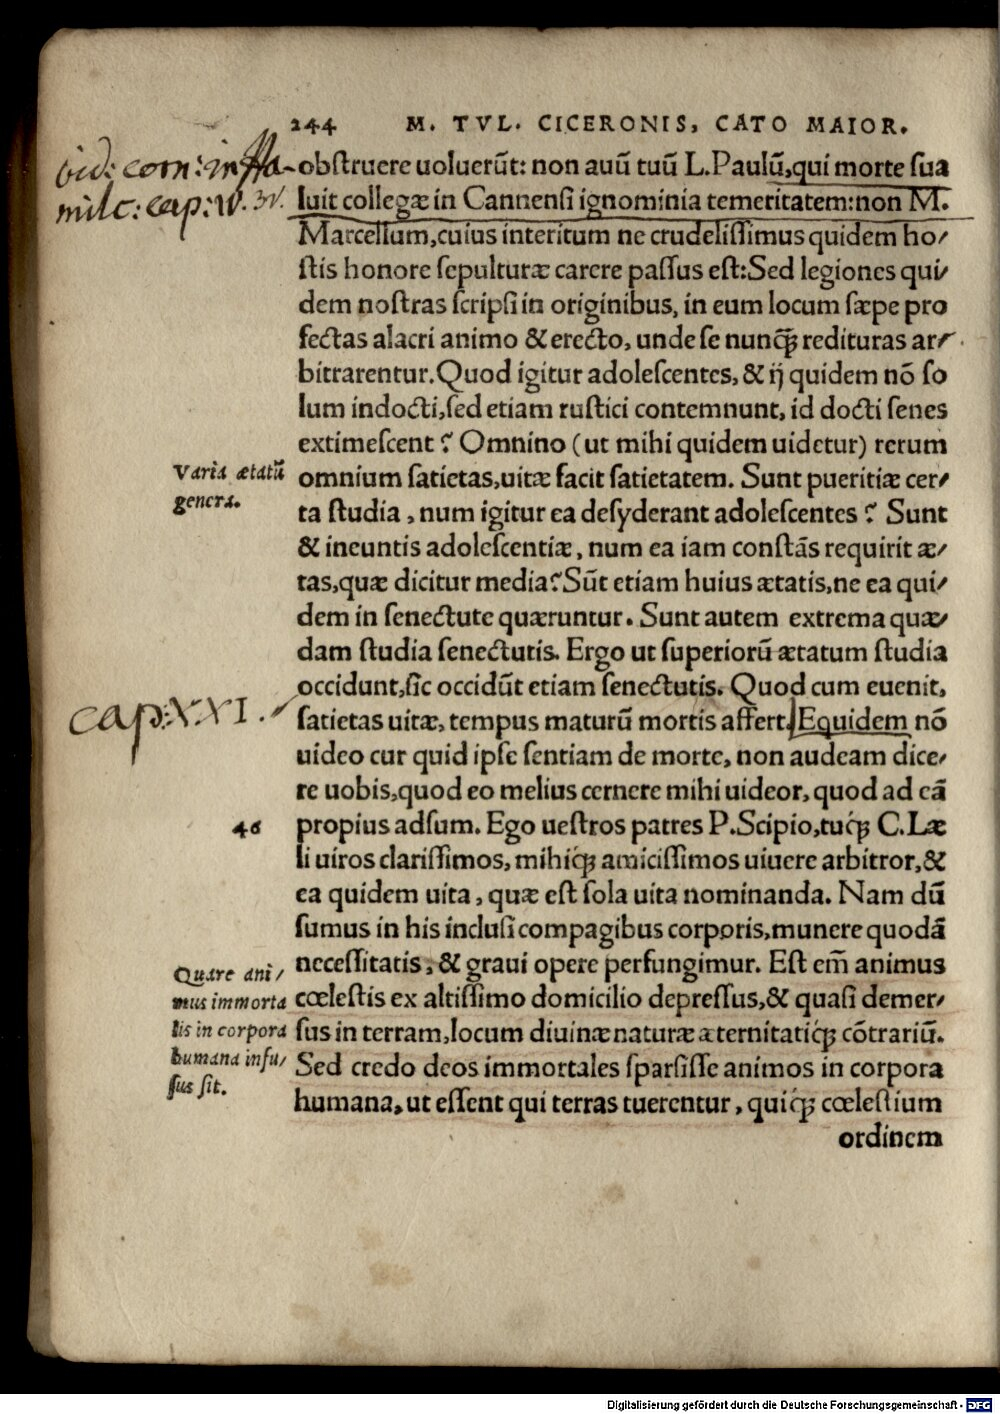 244 M. TVL. CICERONIS, CATO MAIOR.
vid: corn: in
milc: cap: IV.
obstruere uoluerūt: non auū tuū L. Paulū, qui morte sua
luit collegæ in Cannensi ignominia temeritatem: non M.
Marcellum, cuius interitum ne crudelissimus quidem ho/
stis honore sepulturæ carere passus est: Sed legiones qui/
dem nostras scripsi in originibus, in eum locum sæpe pro
fectas alacri animo & erecto, unde se nunq̃ redituras ar/
bitrarentur. Quod igitur adolescentes, & ij quidem nō so
lum indocti, sed etiam rustici contemnunt, id docti senes
extimescent? Omnino (ut mihi quidem uidetur) rerum
Varia ætatū
genera.
omnium satietas, uitæ facit satietatem. Sunt pueritiæ cer/
ta studia, num igitur ea desyderant adolescentes? Sunt
& ineuntis adolescentiæ, num ea iam constās requirit æ/
tas, quæ dicitur media? Sūt etiam huius ætatis, ne ea qui/
dem in senectute quæruntur. Sunt autem extrema quæ/
dam studia senectutis. Ergo ut superiorū ætatum studia
occidunt, sic occidūt etiam senectutis. Quod cum euenit,
cap: XXI.
satietas uitæ, tempus maturū mortis affert. Equidem nō
uideo cur quid ipse sentiam de morte, non audeam dice/
re uobis, quod eo melius cernere mihi uideor, quod ad eā
46
propius adsum. Ego uestros patres P. Scipio, tuq̃ C. Læ
li uiros clarissimos, mihiq̃ amicissimos uiuere arbitror, &
ea quidem uita, quæ est sola uita nominanda. Nam dū
sumus in his inclusi compagibus corporis, munere quodā
necessitatis, & graui opere perfungimur. Est em̄ animus
Quare ani/
mus immorta
lis in corpora
humana infu/
sus sit.
cœlestis ex altissimo domicilio depressus, & quasi demer/
sus in terram, locum diuinæ naturæ æternitatiq̃ cōtrariū.
Sed credo deos immortales sparsisse animos in corpora
humana, ut essent qui terras tuerentur, quiq̃ cœlestium
ordinem
Digitalisierung gefördert durch die Deutsche Forschungsgemeinschaft - DFG